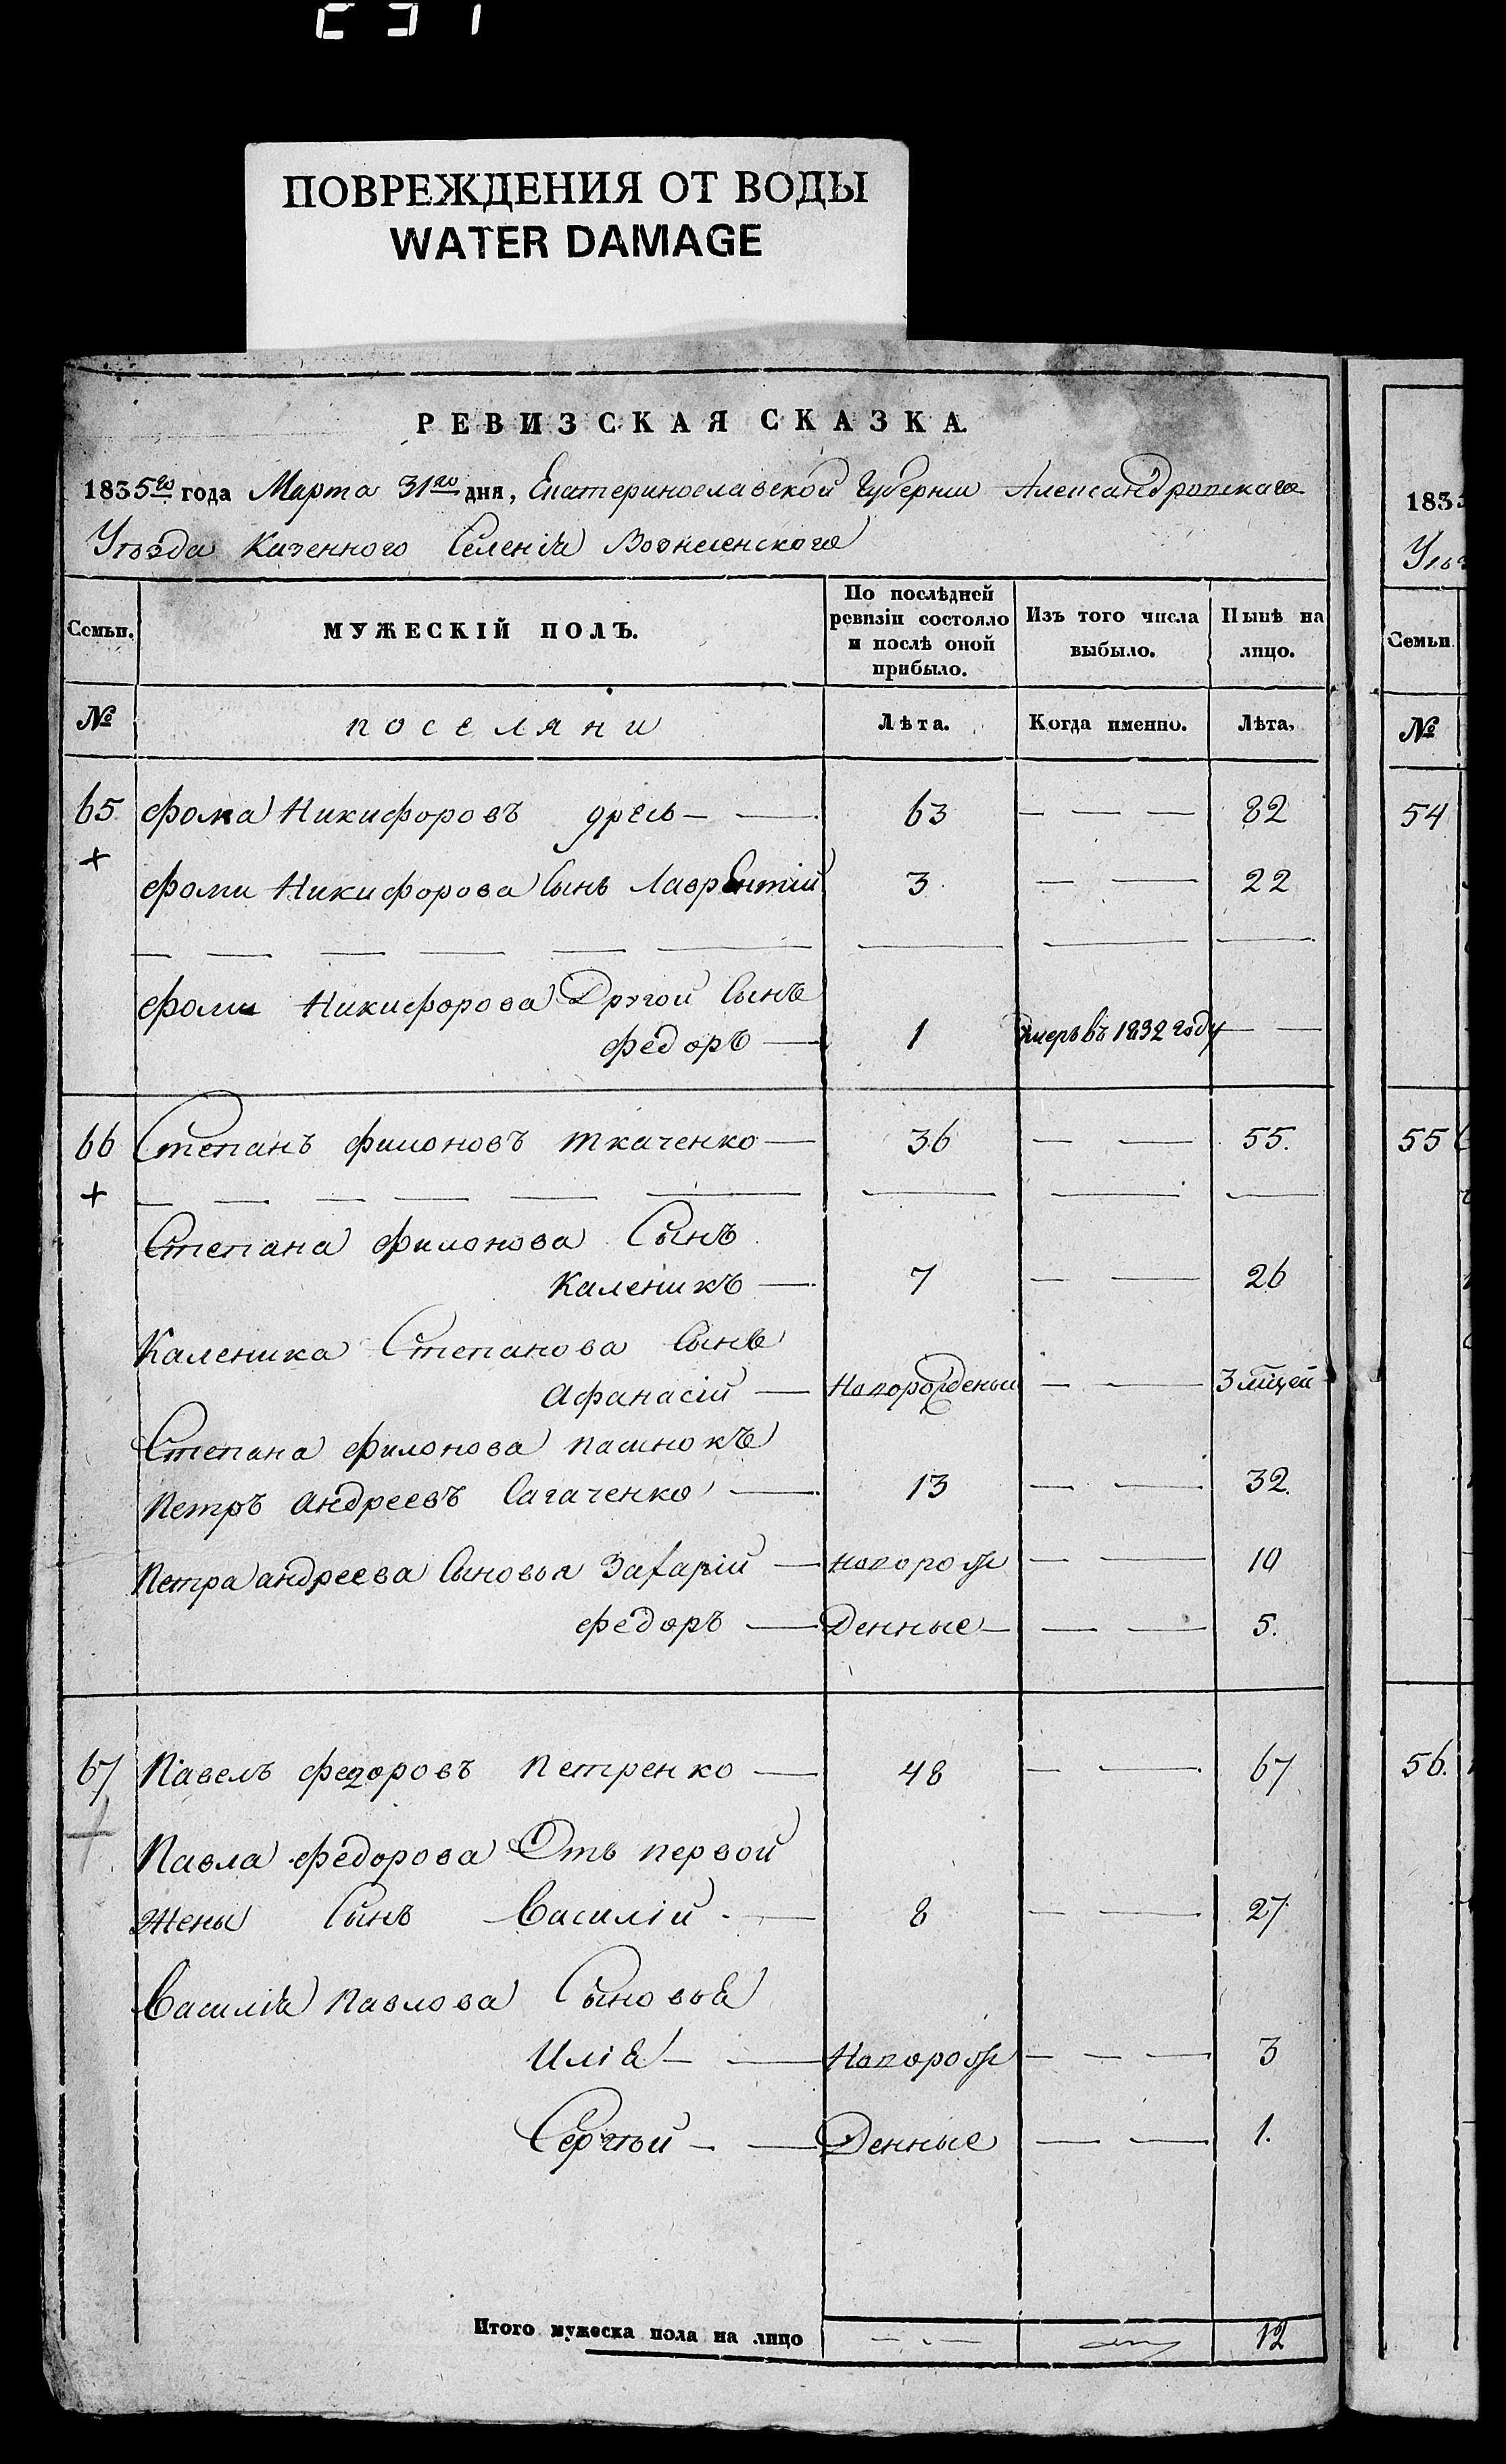 ПОВРЕЖДЕНИЯ ОТ ВОДЫ
WATER DAMAGE
РЕВИЗСКАЯ СКАЗКА.
1835го года Марта 31го дня, Екатеринославской Губерніи Александровскаго
Уѣзда Казенного Селенія Вознесенского
Семьи. МУЖЕСКІЙ ПОЛЪ. По послѣдней ревизіи состояло и послѣ оной прибыло. Изъ того числа выбыло. Нынѣ на лицо.
№ поселяни Лѣта. Когда именно. Лѣта.
65 Фома Никифоровъ — — 63 — — — 82
Фоми Никифорова Сынъ Лаврентій 3 — — 22
Фоми Никифорова Другой Сынъ
Федоръ — 1 умеръ въ 1832 году — —
66 Степанъ Филоновъ Ткаченко — 36 — — 55.
Степана Филонова Сынъ
Каленикъ — 7 — — 26
Каленика Степанова Сынъ
Афанасій — Новорожденый — — 3 мцей
Степана Филонова пасинокъ
Петръ Андреевъ Сагаченко — 13 — — 32.
Петра Андреева Сыновья Захарій — новорож — — 10
Федоръ — Денные — — — 5.
67 Павелъ Федоровъ Петренко — 48 — — 67
Павла Федорова Отъ первой
жены Сынъ Василій — 8 — — 27
Василія Павлова Сыновья
Илія — — Новорож — — — 3
Сергѣй — — Денные — — 1.
Итого мужеска пола на лицо — — 12
1835
Семьи
№
54
55
56.